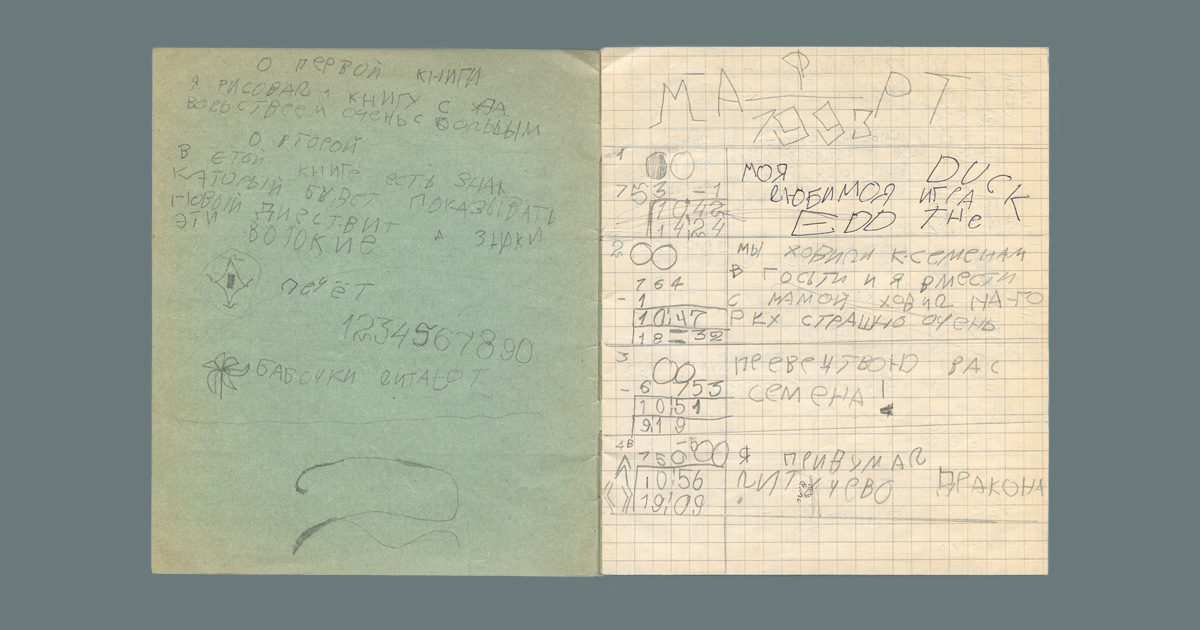 О ПЕРВОЙ КНИГИ
Я РИСОВАЛ КНИГУ С
ОЧЕНЬ С БОЛЬШЫМ
О ВТОРОЙ
В ЕТОЙ КНИГЕ ЕСТЬ ЗНАК
КАТОРЫЙ БУДЕТ ПОКАЗЫВАТЬ
ЭТИ А ЗНАКИ
ВОТ ОКИЕ
ПЕЧЁТ
1234567890
БАБОЧКИ ЛИТАЮТ
МАРТ
1993
1
753 -1
10:42
14:24
МОЯ DUCK
ЛЮБИМОЯ ИГРА
EDD THE
2
764
-1
10:47
18=32
МЫ ХОДИЛИ К СЕМЕНАМ
В ГОСТИ И Я ВМЕСТИ
С МАМОЙ ХОДИЛ НА ГО
РКУ СТРАШНО ОЧЕНЬ
3
-6 753
10:51
9:9
ПРЕВЕЦТВОЮ ВАС
СЕМЕНА!
4В -5
750
10:56
19:09
Я ПРИДУМАЛ
ЛИТУЧЕВО ДРАКОНА